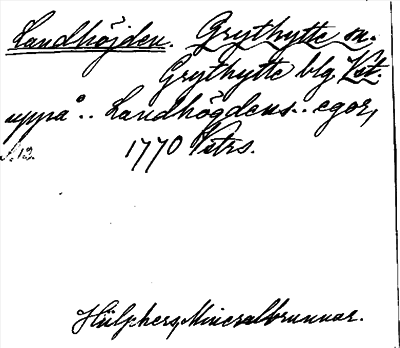 Landhöjden. Grythytte sn.
Grythytte blg. Vst.
uppå.. Landhögdens.. egor,
S. 12. 1770 Vstrs.
Hülphers, Mineralbrunnar.